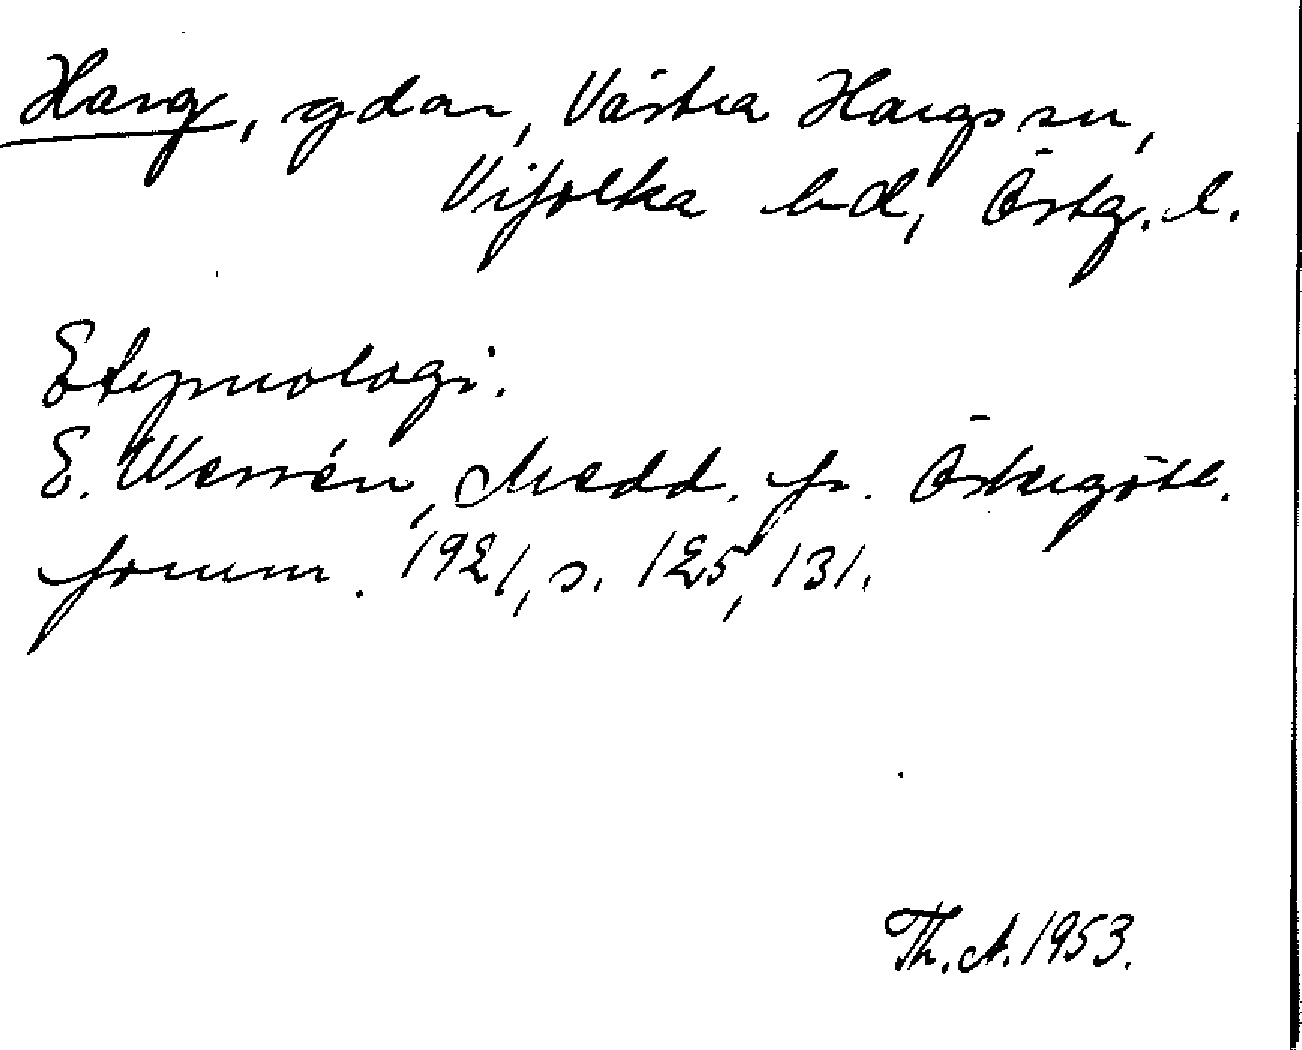 Harg, gdar, Västra Hargs sn,
Vifolka hd, Östg. l.
Etymologi.
E. Wessén, Medd. fr. Östergötl.
fornm. 1921, s. 125, 131.
Th. A. 1953.